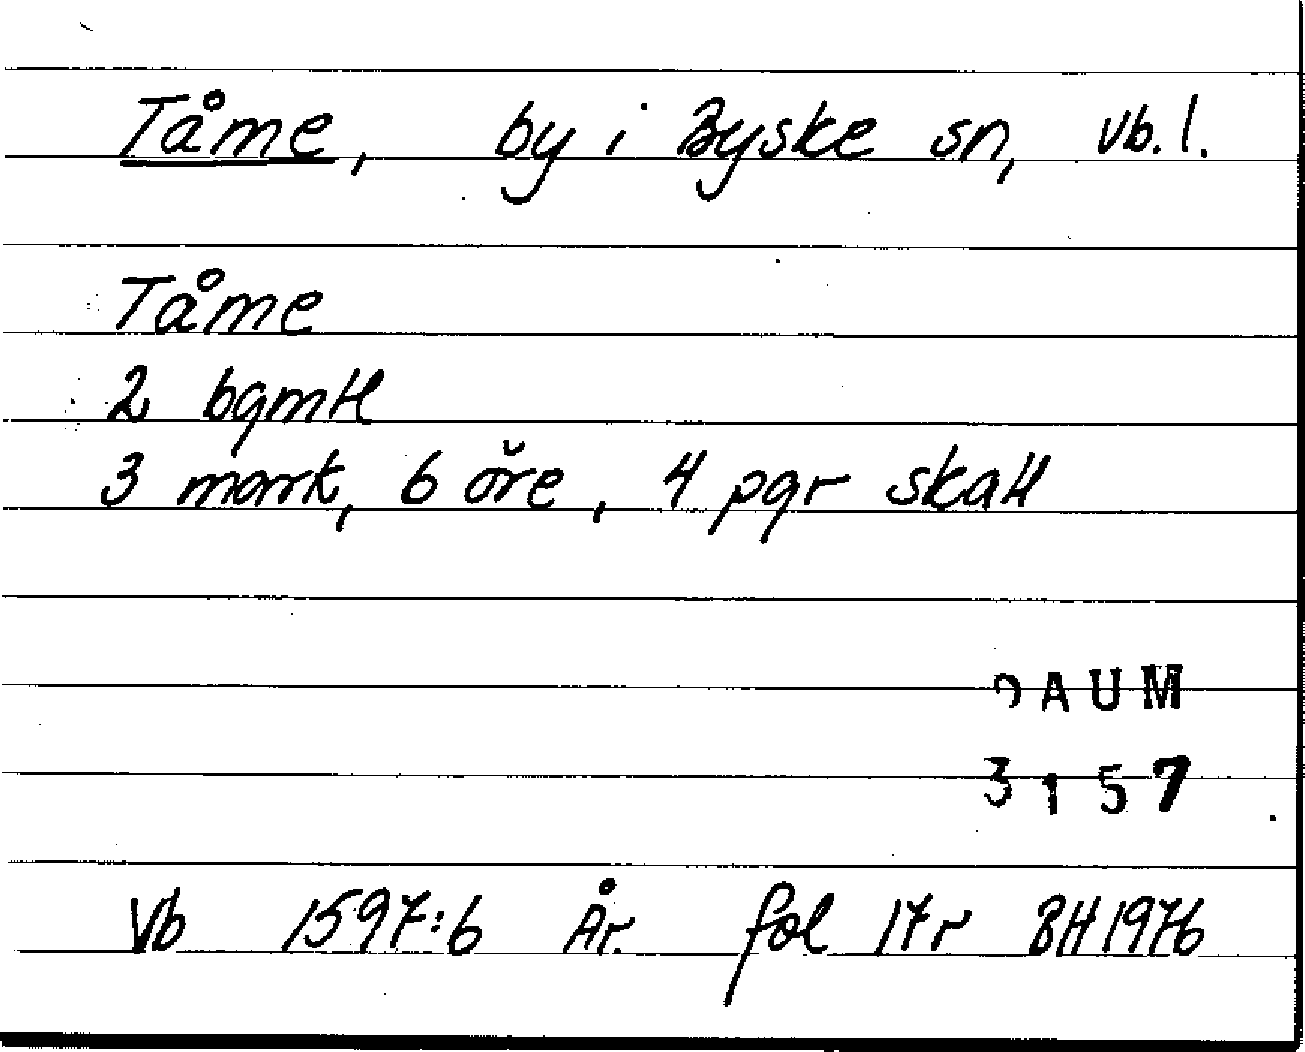 Tåme, by i Byske sn, Vb. l.
Tåme
2 bgmtl
3 mark, 6 öre, 4 pgr skatt
DAUM
3157
Vb 1597:6 År. fol 17r BH 1976